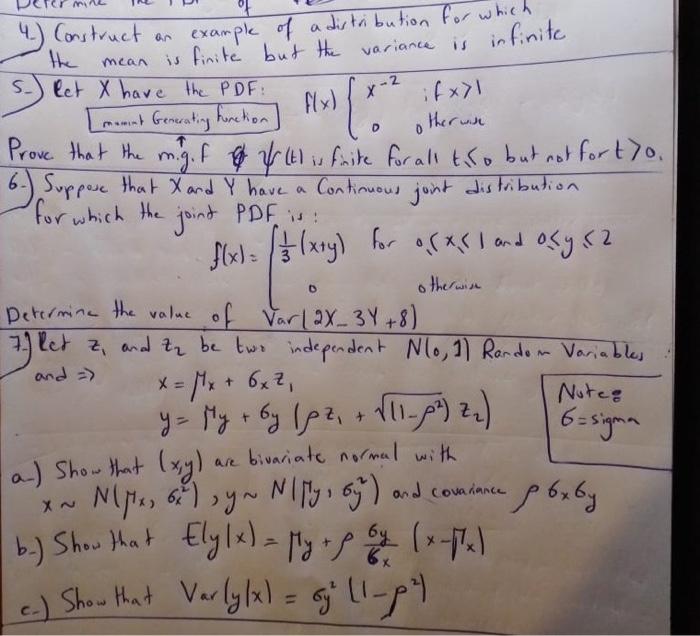 Determine the PDF of
4-) Construct an example of a distribution for which
the mean is finite but the variance is infinite
5-) Let X have the PDF: f(x) { x⁻² ; if x>1
moment Generating Function
0 otherwise
Prove that the m.g.f ψ(t) is finite for all t≤0 but not for t>0.
6-) Suppose that X and Y have a Continuous joint distribution
for which the joint PDF is:
f(x) = { 1/3 (x+y) for 0≤x≤1 and 0≤y≤2
0 otherwise
Determine the value of Var(2X-3Y+8)
7-) Let z₁ and z₂ be two independent N(0,1) Random Variables
and => x = μx + 6x z₁
y = μy + 6y (ρ z₁ + √(1-ρ²) z₂)
Note:
6 = sigma
a-) Show that (x,y) are bivariate normal with
x ~ N(μx, 6x²), y ~ N(μy, 6y²) and covariance ρ 6x6y
b-) Show that E(y|x) = μy + ρ 6y/6x (x-μx)
c-) Show that Var(y|x) = 6y² (1-ρ²)